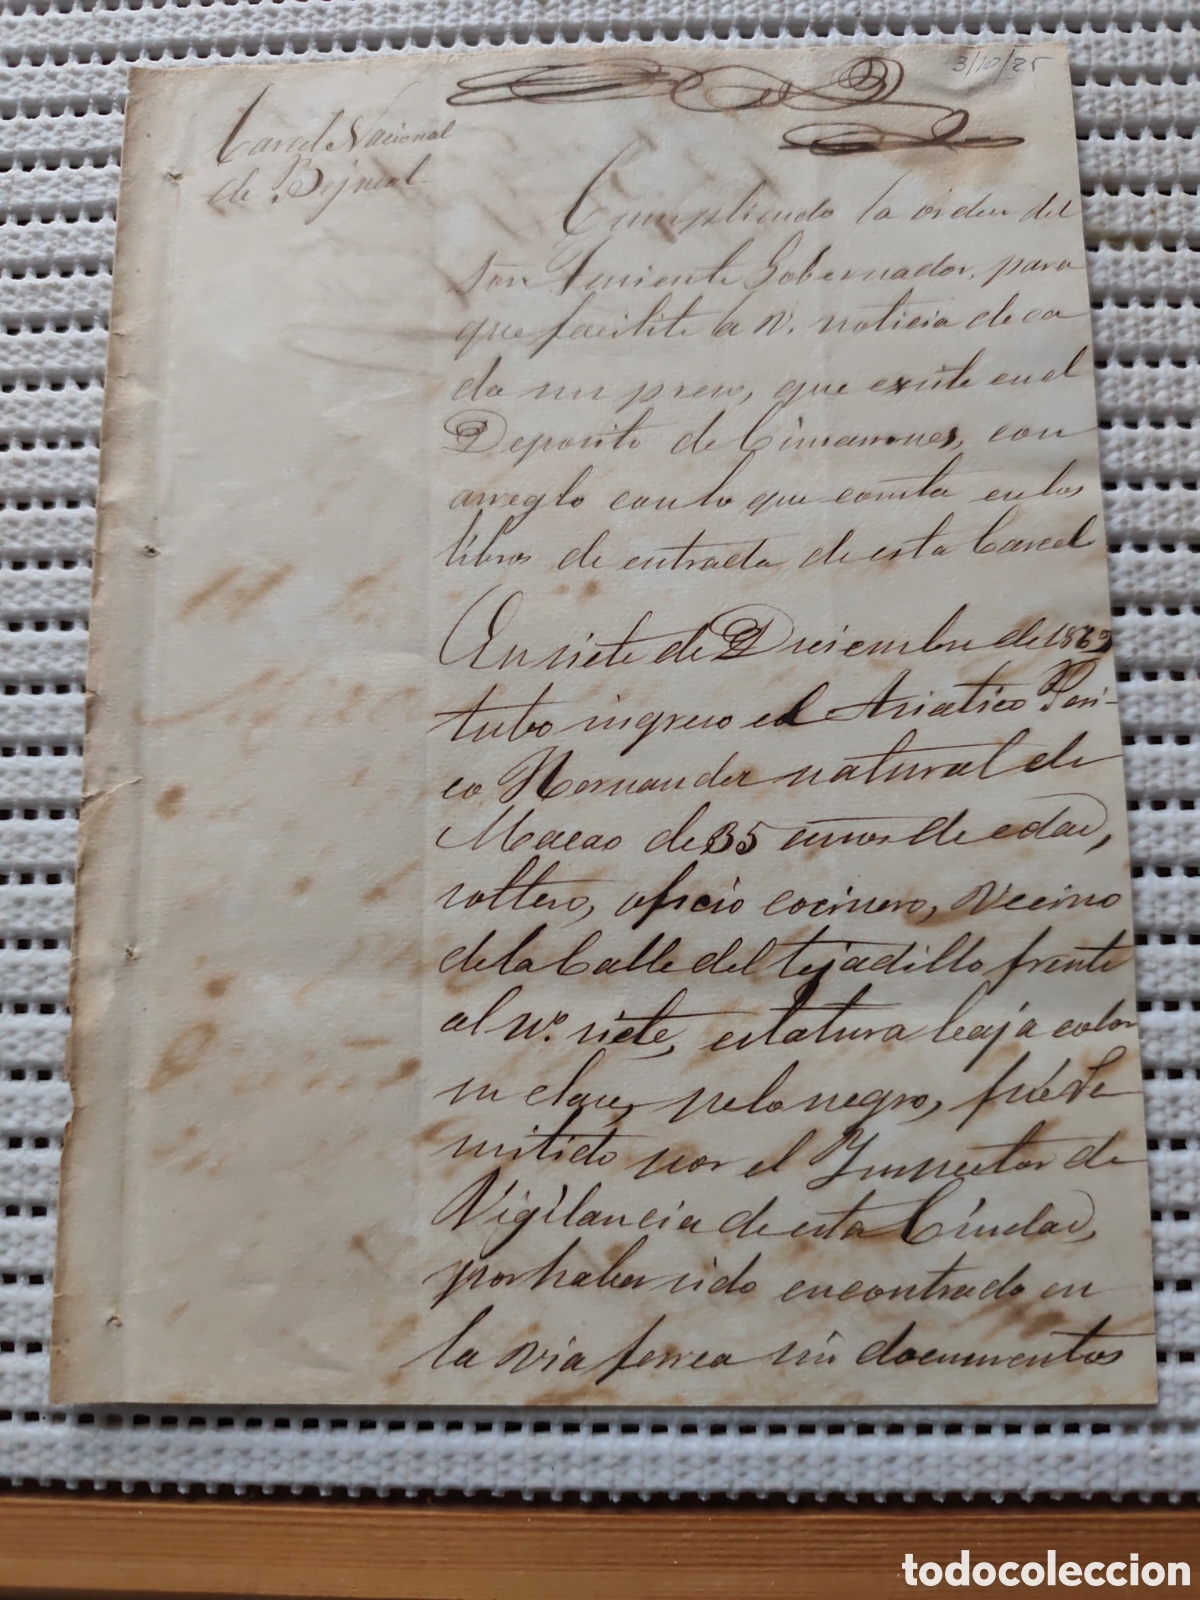 3/10/25
Carcel Nacional
de Bejucal.
Cumpliendo la orden del
Sor. Teniente Gobernador, para
que facilite a V. noticia de ca
da un preso, que existe en el
Deposito de Cimarrones, con
arreglo con lo que consta en los
libros de entrada de esta Carcel
En siete de Diciembre de 1862
tubo ingreso el Asiatico Peri-
co Hernandez natural de
Macao de 35 años de edad,
soltero, oficio cocinero, Vecino
de la Calle del tejadillo frente
al No. siete, estatura baja color
su clase, pelo negro, fué Re
mitido por el Ynspector de
Vigilancia de esta Ciudad,
por haber sido encontrado en
la via ferrea sin documentos
todocoleccion